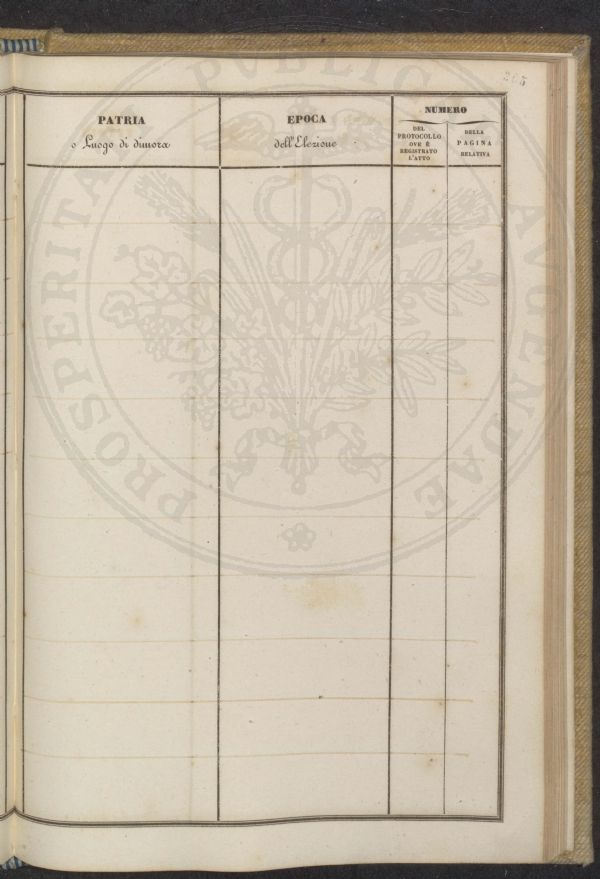 205
PATRIA
o Luogo di dimora
EPOCA
dell'Elezione
NUMERO
DEL
PROTOCOLLO
OVE È
REGISTRATO
L'ATTO
DELLA
PAGINA
RELATIVA
PROSPERITATI PVBLICAE AVGENDAE